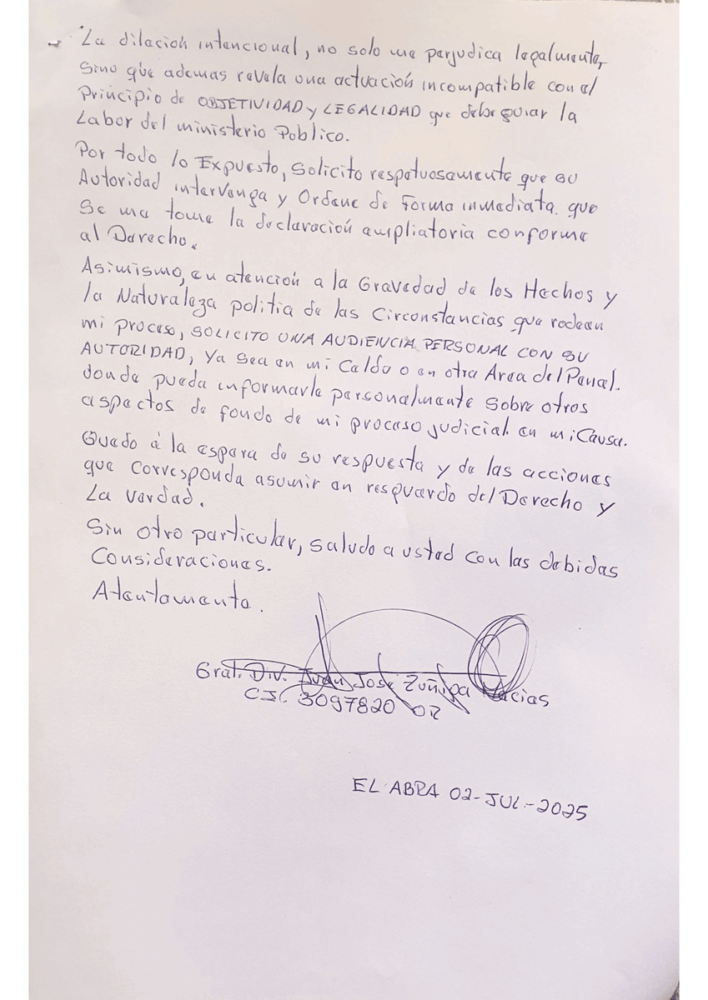 La dilación intencional, no solo me perjudica legalmente,
sino que ademas revela una actuación incompatible con el
Principio de OBJETIVIDAD y LEGALIDAD que debe guiar la
Labor del ministerio Publico.
Por todo lo Expuesto, Solicito respetuosamente que su
Autoridad intervenga y Ordene de forma inmediata que
Se me tome la declaración ampliatoria conforme
al Derecho.
Asimismo, en atención a la Gravedad de los Hechos y
la Naturaleza politia de las Circonstancias que rodean
mi proceso, SOLICITO UNA AUDIENCIA PERSONAL CON SU
AUTORIDAD, Ya sea en mi Celda o en otra Area del Penal.
donde pueda informarle personalmente sobre otros
aspectos de fondo de mi proceso judicial en mi Causa.
Quedo a la espera de su respuesta y de las acciones
que corresponda asumir en resguardo del Derecho y
La verdad.
Sin otro particular, saludo a usted con las debidas
Consideraciones.
Atentamente.
Gral. Div. Juan José Zuñiga Macias
C.I. 3097820 OR
EL ABRA 02-JUL-2025